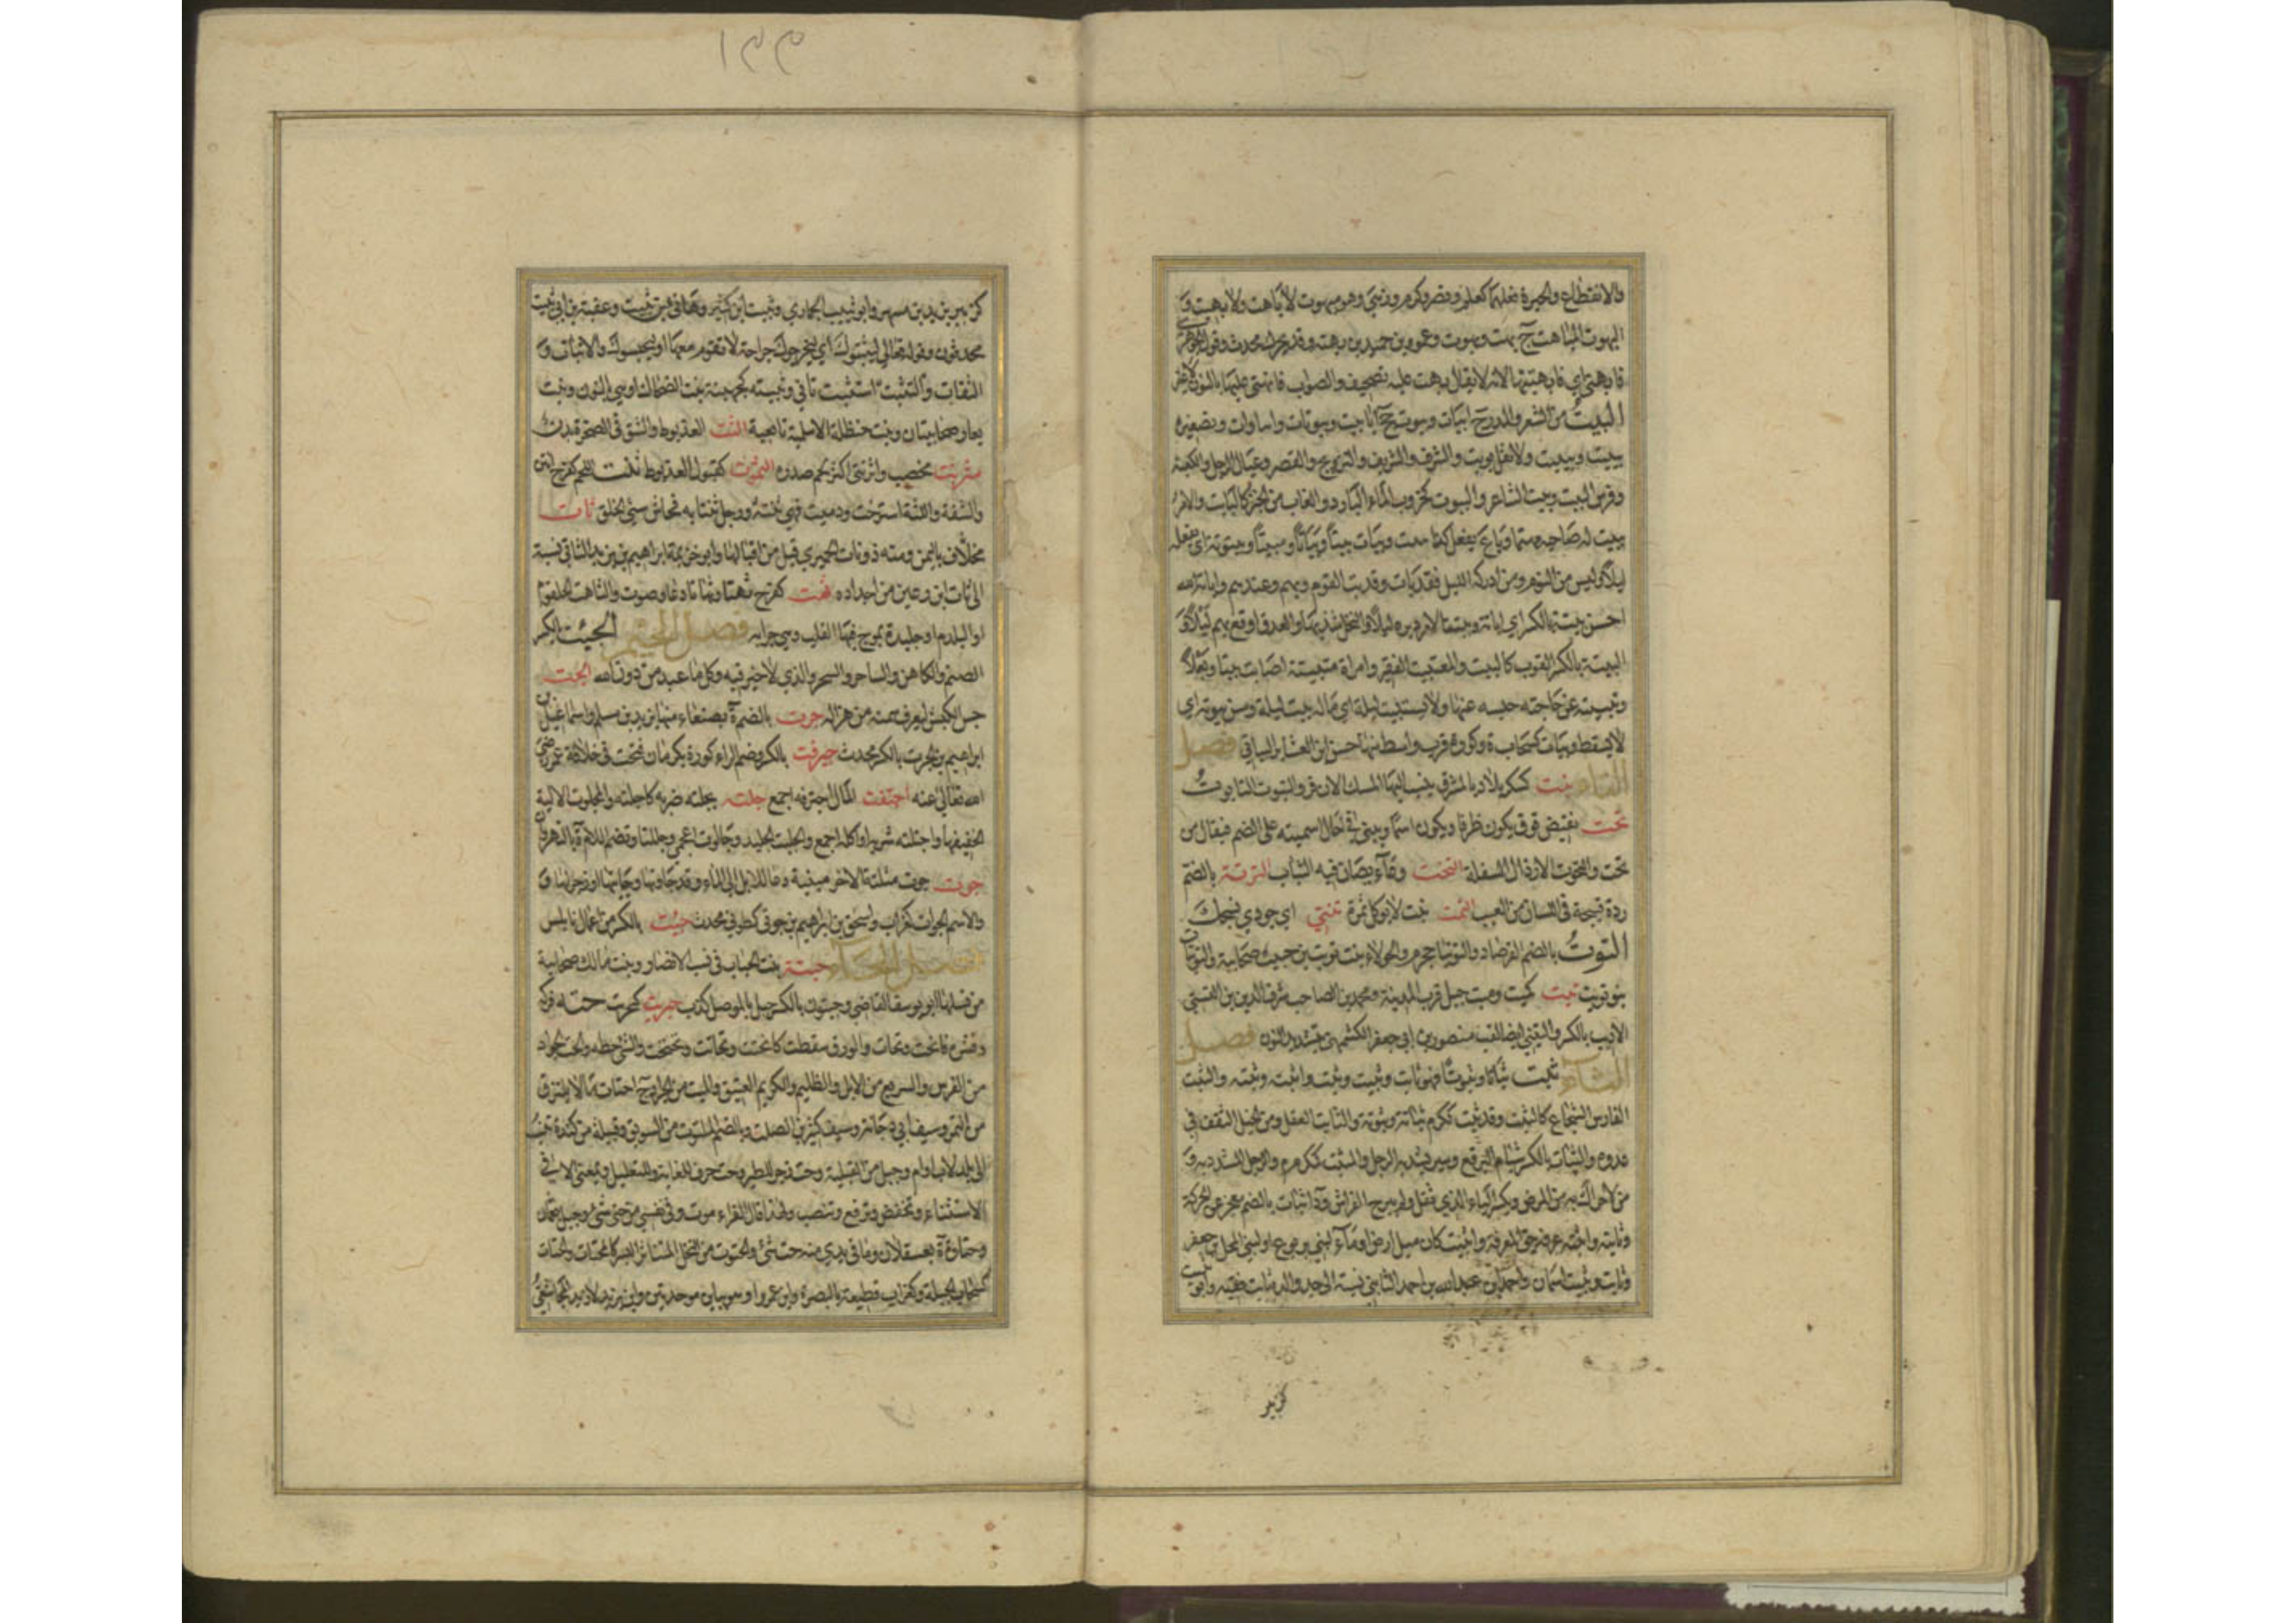 ١٣٣
والانقطاع والحيرة فعلهما كعلم ونصر وكرم وزهي وهو مبهوت لا باهت ولا بهيت و
البهوت المباهت ج بهت وبهوت وعمرو بن حميد بن بهته وقد يحرك محدث وقول الجوهري
فابهتي اي فابهتيها لانه لا يقال بهت عليه تصحيف والصواب فانهتي عليها بالنون لا غير
البيت من الشعر والمدر ج ابيات وبيوت جج اباييت وبيوتات وابياوات وتصغيره
بييت وبييت ولا تقل بويت والشرف والشريف والتزويج والقصر وعيال الرجل والكعبة
وفرش البيت وبيت الشاعر والبيوت كخروب الماء البارد والغاب من الخبز كالبايت والامر
يبيت له صاحبه مهتما وبات يفعل كذا يبيت ويبات بيتا وبياتا ومبيتا وبيتوتة اي يفعله
ليلا وليس من النوم ومن ادركه الليل فقد بات وقد بت القوم وبهم وعندهم واباته الله
احسن بيتة بالكسر اي اباتة وبيت الامر دبره ليلا والنخل شذبها والعدو اوقع بهم ليلا و
البيتة بالكسر القوت كالبيت والمستبيت الفقير وامراة متبيتة اصابت بيتا وبعلا
وتبيته عن حاجته حبسه عنها ولا يستبيت ليلة اي ماله بيت ليلة وسن بيوتة اي
لا يسقط وبيات كسحابة وكورة قرب واسط منها حسن ابن العنابر البياتي فصل
التاء تبت كسكر بلاد بالمشرق ينسب اليها المسك الاذفر والتبوت التابوت
تحت نقيض فوق يكون ظرفا ويكون اسما ويبنى في حال اسميته على الضم فيقال من
تحت والتحوت الارذال السفلة التخت وعاء يصان فيه الثياب الترتة بالضم
ردة قبيحة في اللسان من العيب التمت نبت لا يوكل ثمرة تنتي اي جودي نسجك
التوت بالضم الفرصاد والتوتيا حجر م والحولاء بنت تويت بن حبيب صحابية والتويتات
بنو تويت تيت كميت وميت جبل قرب المدينة ومحمد بن الصاحب شرف الدين بن التيتي
الاديب بالكسر والتيتي ايضا لقب منصور بن ابي جعفر الكشميهني بتشديد النون فصل
الثاء ثبت ثباتا وثبوتا فهو ثابت وثبيت وثبت واثبته وثبته والثبيت
الفارس الشجاع كالثبت وقد ثبت ككرم ثباتة وثبوتة والثابت العقل ومن الخيل الثقف في
عدوه والثبات بالكسر شبام البرقع وسير يشد به الرحل والمثبت ككرم الرجل المشدود به و
من لا حراك به من المرض وبكسر الباء الذي ثقل ولم يبرح الفراش وداء ثبات بالضم معجز عن الحركة
وثابته واثبته عرفه حق المعرفة واثبيت كان مسيل ارض او ماء لبني يربوع او لبني المحل بن جعفر
وثابت وثبيت اسمان واحمد بن عبد الله بن احمد الثابتي نسبة الى جد والده ثابت فقيه وابو
كزبير
كزبير بن يزيد بن مسهر وابو ثبيت الجماري وثبيت ابن كثير وهاني بن ثبيت وعقبة بن ابي ثبيت
محدثون وقوله تعالى ليثبتوك اي ليجرحوك جراحة لا تقوم معها او ليحبسوك والاثبات و
الثقات والتثبت استثبت تاني وثبيته كجهينة بنت الضحاك او هي بالنون وبنت
يعار صحابيتان وبنت حنظلة الاسلمية تابعية الثت العذيوط والشق في الصخرة
مثرنت مخصب واثرنتى اكثر لحم صدره الثموت كقبول العذيوط ثنت اللحم كفرح انتن
والشفة واللثة استرخت ودميت فهي ثنتة ورجل ثنتاية فحاش سيئ الخلق ثات
مخلاف باليمن ومنه ذو ثات الحميري قيل من اقيالها وابو خزيمة ابراهيم بن يزيد الثاتي نسبة
الى ثات ابن رعين من اجداده ثهت كفرح ثهتا وثهاتا دعا وصوت والثاهت الحلقوم
او البلدم او جليدة يموج فيها القلب وهي جرابه فصل الجيم الجبت بالكسر
الصنم والكاهن والساحر والسحر والذي لا خير فيه وكل ما عبد من دون الله الجت
جس الكبش ليعرف سمنه من هزاله جرت بالضم ة بصنعاء منها يزيد بن مسلم واسماعيل بن
ابراهيم بن جرت بالكسر محدث جيرفت بالكسر وضم الراء كورة بكرمان فتحت في خلافة عمر رضي
الله تعالى عنه اجتفت المال اجترفه اجمع جلته يجلته ضربه كاجتلته والمجلوت الالية
الخفيفها واجتلته شربه او اكله اجمع والجليت الجليد وجالوت اعجمي وجللتا وتضم اللام ة بالنهروان
جوت جوت مثلثة الاخر مبنية دعا للابل الى الماء وقد جاوتها وجايتها او زجر لها و
والاسم الجوات كغراب واسحق بن ابراهيم بن جوتى كطوبى محدث جيت بالكسر من اعمال نابلس
فصل الحاء حبتة بنت الحباب في نسب الانصار وبنت مالك صحابية
من نسلها ابو يوسف القاضي وحبتون بالكسر جبل بالموصل كذب حبريت كحبرت حته فركه
وقشره فانحت وتحات والورق سقطت كانحتت وتحاتت وتحتحت والشئ حطه والحت الجواد
من الفرس والسريع من الابل والظليم والكريم العتيق والميت من الجراد ج احتات وما لا يلتزق
من التمر وسيف ابي دجانة وسيف كثير بن الصلت وبالضم الملتوت من السويق وقبيلة من كندة تنسب
الى بلد لا اب او ام وجبل من القبلية وحت زجر للطير وحتى حرف للغاية والتعليل وبمعنى الا في
الاستثناء وتخفض وترفع وتنصب ولهذا قال الفراء اموت وفي نفسي من حتى شئ وجبل بعمان
وحتاوة ة بعسقلان وما في يدي منه حت شئ والحتوت من النخل المتناثر البسر كالمحتات والحتات
كسحاب الجلبة وكغراب قطيعة بالبصرة وابن عمرو او هو ابن يزيد لا زيد المجاشعي